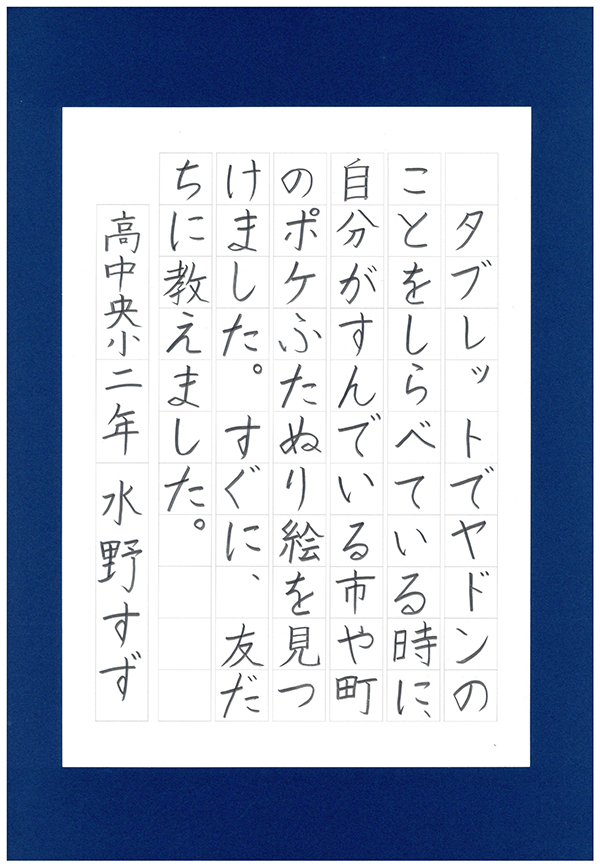 タブレットでヤドンの
ことをしらべている時に、
自分がすんでいる市や町
のポケふたぬり絵を見つ
けました。すぐに、友だ
ちに教えました。
高中央小二年 水野すず